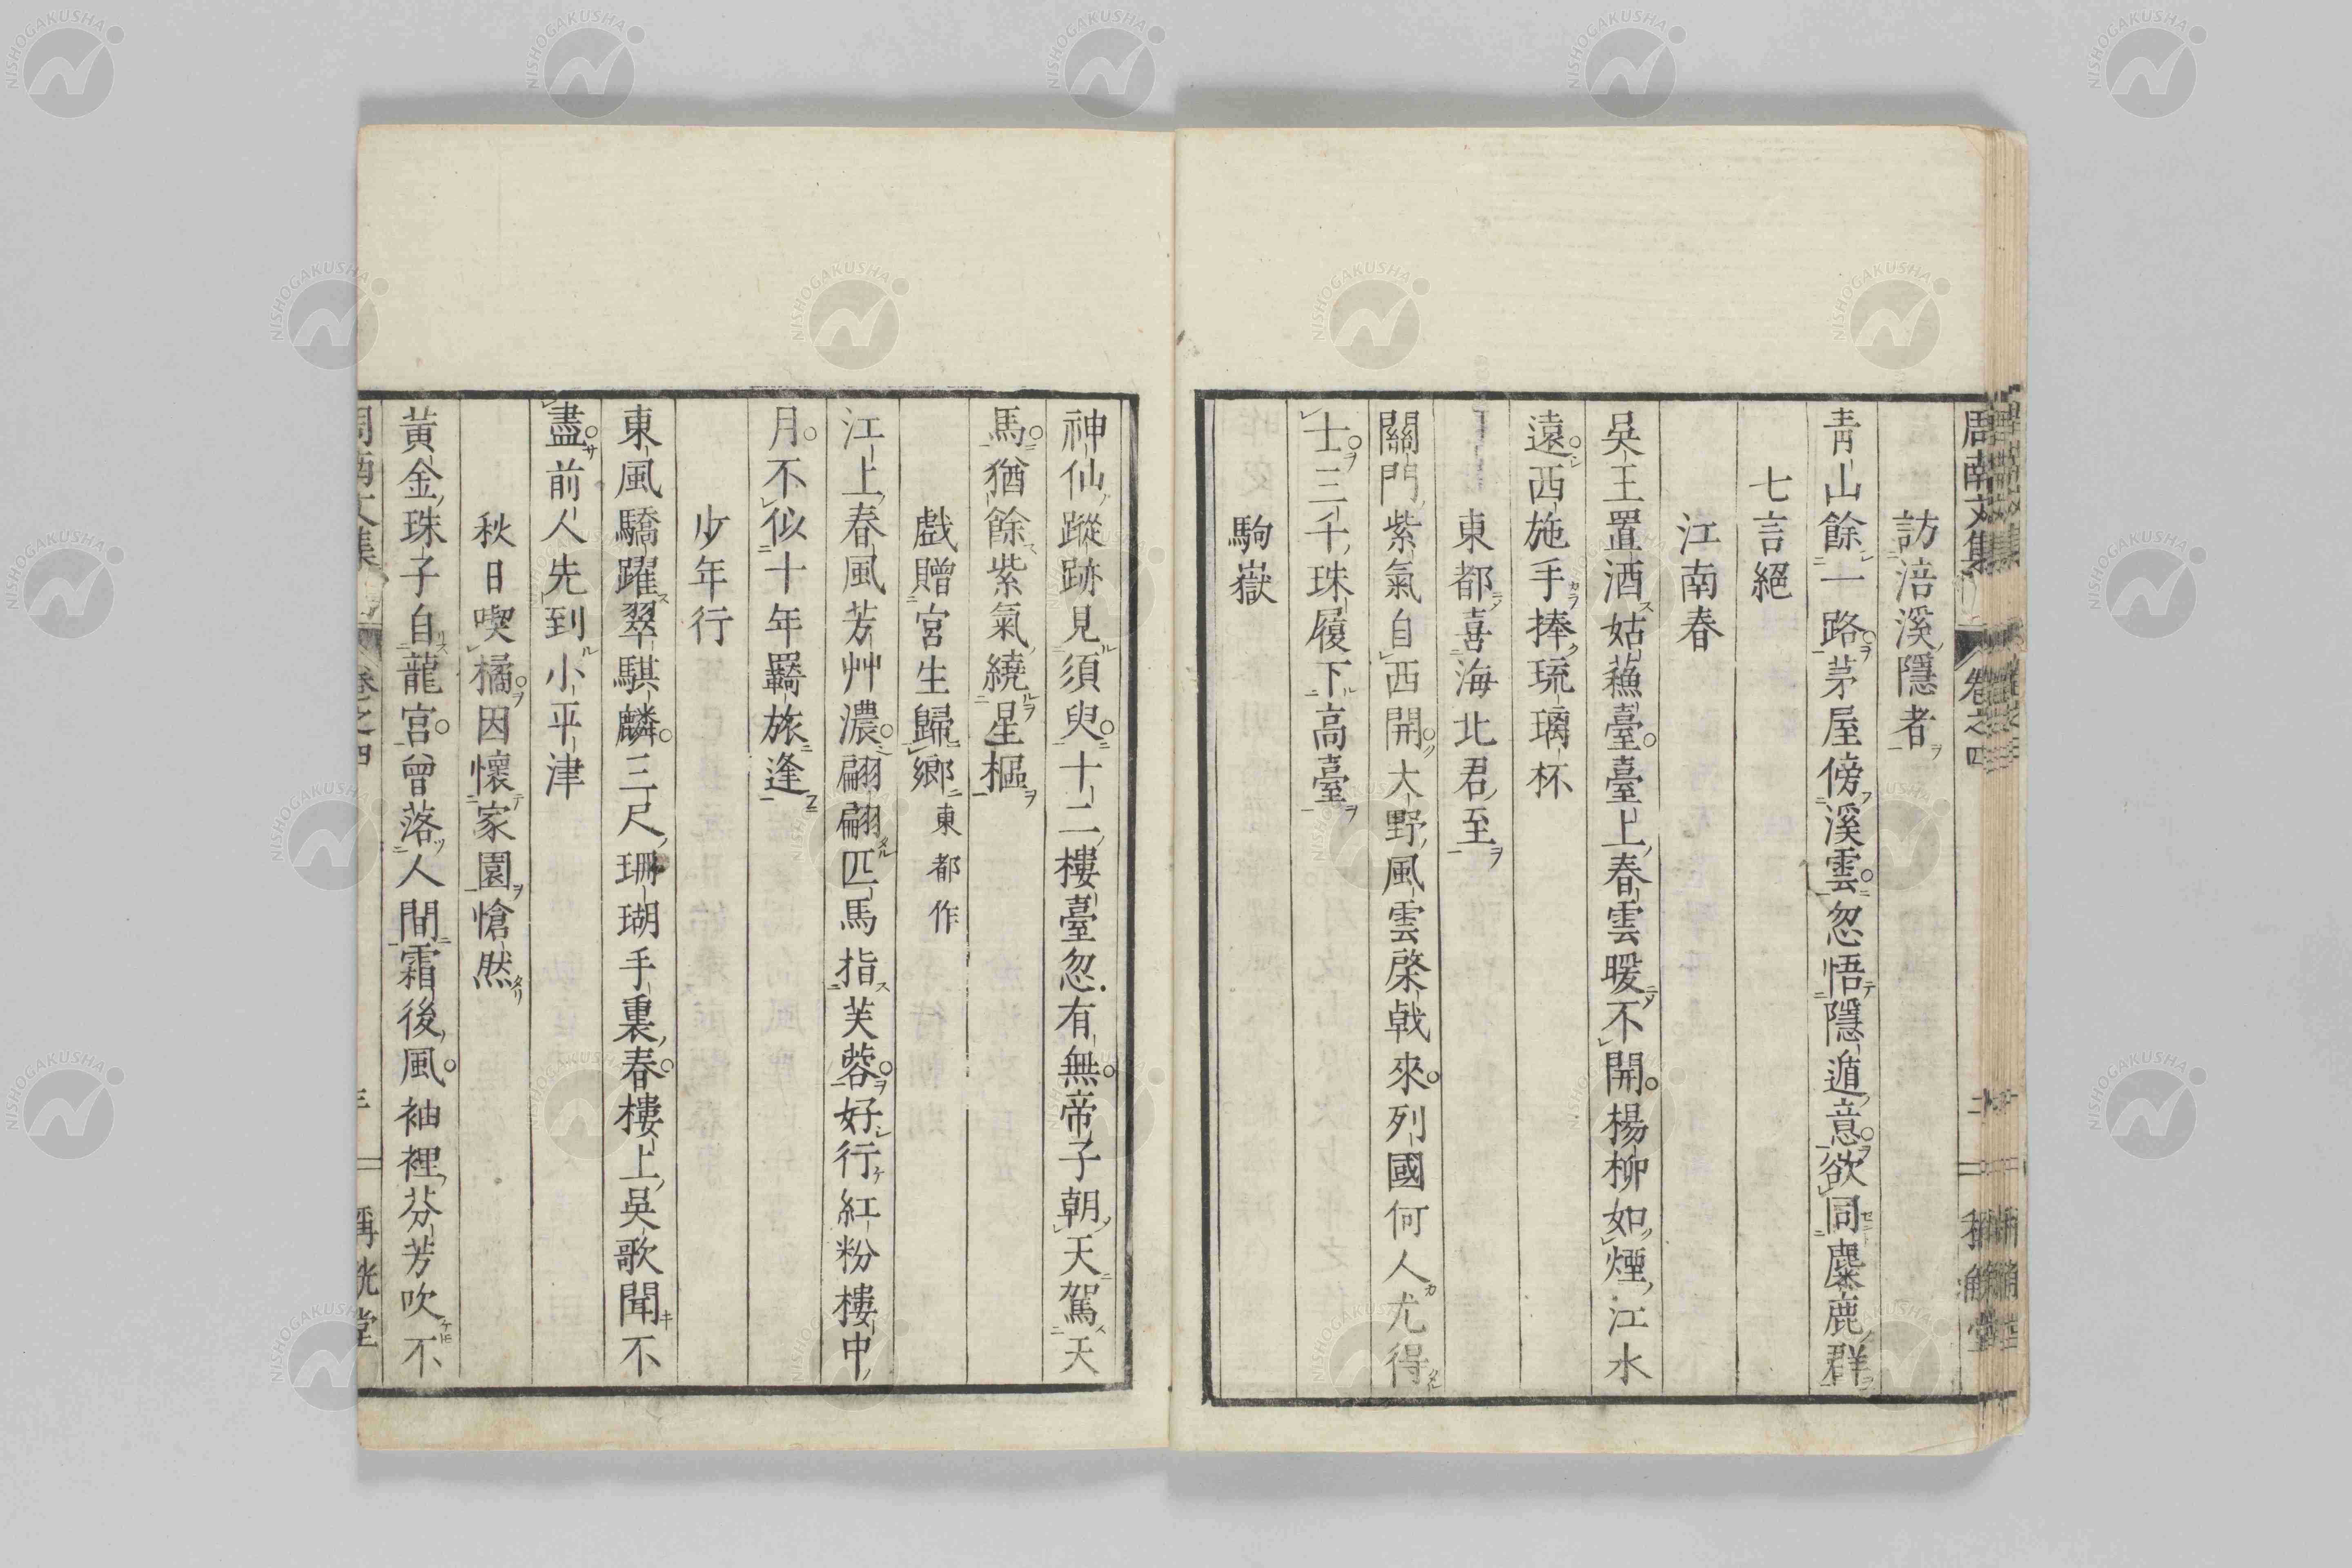 周南文集
卷之四
訪涪溪隱者
青山餘一路茅屋傍溪雲忽悟隱遁意欲同麋鹿群
七言絕
江南春
吳王置酒姑蘓臺臺上春雲暖不開楊柳如煙江水
遠西施手捧琉璃杯
東都喜海北君至
關門紫氣自西開大野風雲棨戟來列國何人尤得
士三千珠履下高臺
駒嶽
神仙蹤跡見須臾十二樓臺忽有無帝子朝天駕天
馬猶餘紫氣繞星樞
戲贈宮生歸鄉 東都作
江上春風芳艸濃翩翩匹馬指芙蓉好行紅粉樓中
月不似十年羈旅逢
少年行
東風驕躍翠騏麟三尺珊瑚手裏春樓上吳歌聞不
盡前人先到小平津
秋日喫橘因懷家園愴然
黃金珠子自龍宮曾落人間霜後風袖裡芬芳吹不
NISHOGAKUSHA